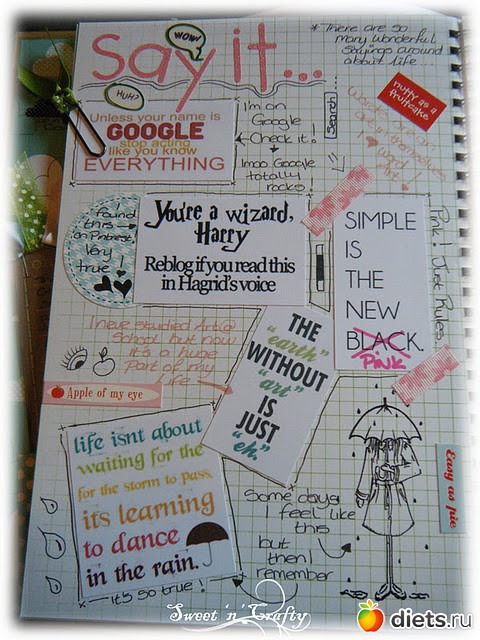 say it...
WOW!
HUH?
* There are so
many wonderful
sayings around
about life...
nutty as a
fruitcake
Unless your name is
GOOGLE
stop acting
like you know
EVERYTHING
I'm on
Google
Check it!
Imao Google
totally
rocks!
Search
I found
this
on Pintrest.
Very
true!
You're a wizard,
Harry
Reblog if you read this
in Hagrid's voice
SIMPLE
IS
THE
NEW
BLACK.
Pink
Pink! Just Rules.
I neve studied Art @
School but now
it's a huge
Part of my
Life
Apple of my eye
THE
"earth"
WITHOUT
"art"
IS
JUST
"eh"
life isnt about
waiting for the
for the storm to pass,
its learning
to dance
in the rain.
it's so true!
Some days
I feel like
this
but
then I
remember
Easy as pie
Sweet 'n' Crafty
diets.ru